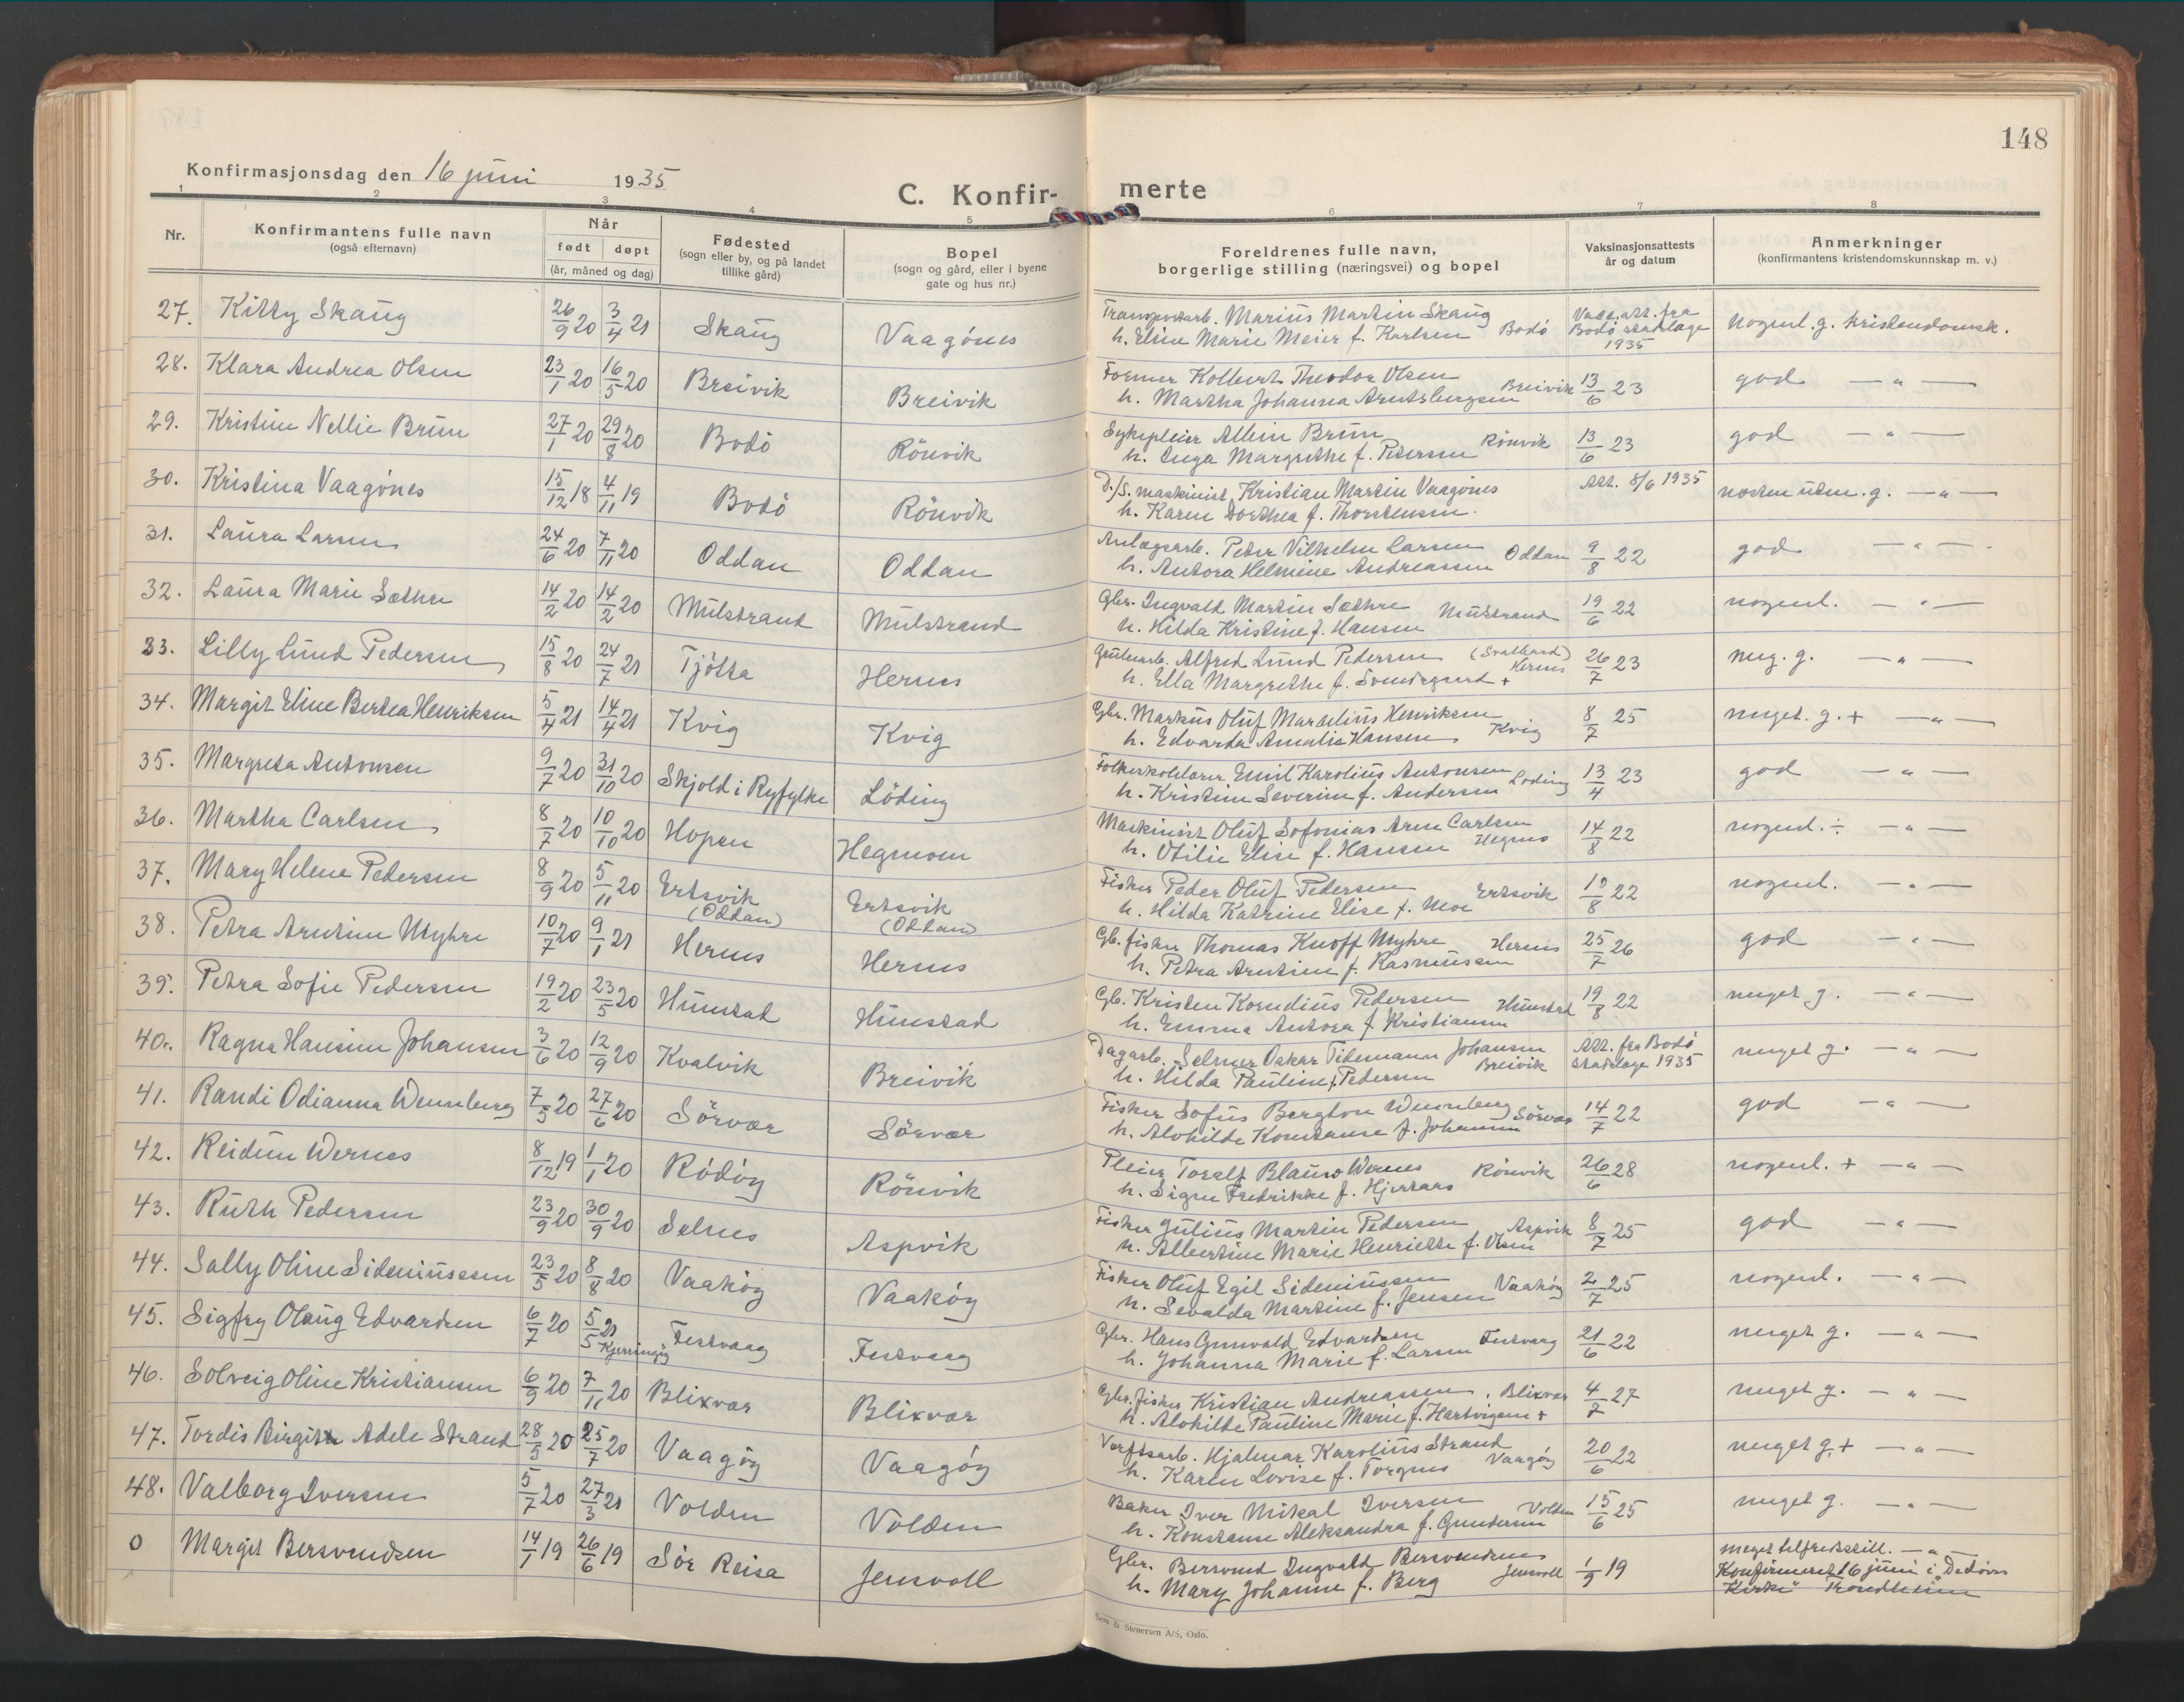 148
Konfirmasjonsdag den 16 juni 1935
C. Konfirmerte
1 2 3 4 5 6 7 8
Nr.
Konfirmantens fulle navn
(også efternavn)
Når
født døpt
(år, måned og dag)
Fødested
(sogn eller by, og på landet
tillike gård)
Bopel
(sogn og gård, eller i byene
gate og hus nr.)
Foreldrenes fulle navn,
borgerlige stilling (næringsvei) og bopel
Vaksinasjonsattests
år og datum
Anmerkninger
(konfirmantens kristendomskunnskap m. v.)
27. Kitty Skaug 26/9 20 3/4 21 Skaug Vaagönes Transportarb. Marius Martin Skaug
h. Elsine Marie Meier f. Karlsen Bodö Vacc. att. fra Bodö stadslæge 1935 nogenl. g. kristendomsk.
28. Klara Andrea Olsen 23/1 20 16/5 20 Breivik Breivik Former Kolbert Theodor Olsen
h. Martha Johanna Arntsbergsen Breivik 13/6 23 god — " —
29. Kristine Nellie Brun 27/1 20 29/8 20 Bodö Rönvik Sykepleier Albin Brun
h. Inga Margrethe f. Petersen Rönvik 13/6 23 god — " —
30. Kristina Vaagönes 15/12 18 4/11 19 Bodö Rönvik D./S. maskinist Kristian Martin Vaagönes
h. Karen Dorthea f. Thorstensen. Att. 8/6 1935 nesten utm. g. — " —
31. Laura Larsen 24/6 20 7/11 20 Oddan Oddan Anlægsarb. Peter Vilhelm Larsen
h. Antora Helmine Andreassen Oddan 9/8 22 god — " —
32. Laura Marie Sæthre 14/2 20 14/2 20 Mulstrand Mulstrand Gbr. Ingvald Martin Sæthre
h. Hilda Kristine f. Hansen Mulstrand 19/6 22 nogenl. — " —
33. Lilly Lund Pedersen 15/8 20 24/7 21 Tjötta Hernes Grubearb. Alfred Lund Pedersen (Svalbard)
h. Ella Margrethe f. Svendsgaard + Hernes 26/7 23 meg. g. — " —
34. Margit Eline Bertea Henriksen 5/4 21 14/4 21 Kvig Kvig Gbr. Markus Oluf Marselius Henriksen
h. Edvarda Amalia Hansen Kvig 8/7 25 meget. g. + — " —
35. Margreta Antonsen 9/7 20 31/10 20 Skjold i Ryfylke Löding Folkeskolelærer Emil Karolius Antonsen
h. Kristine Severine f. Andersen Löding 13/4 23 god — " —
36. Martha Carlsen 8/7 20 10/10 20 Hopen Hegmoen Maskinist Oluf Sofonias Arne Carlsen
h. Otilie Elise f. Hansen Hegmo 14/8 22 nogenl. ÷ — " —
37. Mary Helene Pedersen 8/9 20 5/11 20 Ertsvik (Oddan) Ertsvik (Oddan) Fisker Peder Oluf Pedersen
h. Hilda Katrine Elise f. Moe Ertsvik 19/8 22 nogenl. — " —
38. Petra Arntine Myhre 10/7 20 9/1 21 Hernes Hernes Gb. fisker Thomas Knoff Myhre
h. Petra Arntine f. Rasmussen Hernes 25/7 26 god — " —
39. Petra Sofie Pedersen 19/2 20 23/5 20 Hunstad Hunstad Gb. Kristen Kornelius Pedersen
h. Emma Antora f. Kristiansen Hunstad 19/8 22 meget g. — " —
40. Ragna Hansine Johansen 3/6 20 12/9 20 Kvalvik Breivik Dagarb. Selmer Oskar Tidemann Johansen
h. Hilda Pauline f. Pedersen Breivik Att. fra Bodö stadslæge 1935 meget g. — " —
41. Randi Odianna Wennberg 7/5 20 27/6 20 Sörvær Sörvær Fisker Sofus Bergton Wennberg
h. Alvhilde Konstanse f. Johansen Sörvær 14/7 22 god — " —
42. Reidun Wernes 8/12 19 1/1 20 Rödöy Rönvik Pleier Toralf Blauw Wernes
h. Signe Fredrikke f. Hjertaas Rönvik 26/6 28 nogenl. + — " —
43. Ruth Pedersen 23/9 20 30/9 20 Selnes Aspvik Fisker Julius Martin Pedersen
h. Albertine Marie Henriette f. Olsen Aspvik 8/7 25 god — " —
44. Sally Oline Sideniussen 23/5 20 8/8 20 Vaaköy Vaaköy Fisker Oluf Egil Sideniussen
h. Sevalda Martine f. Jensen Vaaköy 2/7 25 nogenl. — " —
45. Sigfry Olaug Edvardsen 6/7 20 5/5 21 Kjerringöy Festvaag Festvaag Gbr. Hans Gunvald Edvardsen
h. Johanna Marie f. Larsen Festvaag 21/6 22 meget g. — " —
46. Solveig Oline Kristiansen 6/9 20 7/11 20 Blixvær Blixvær Gbr. fisker Kristian Andreassen
h. Alvhilde Pauline Marie f. Hartvigsen + Blixvær 4/7 27 meget g. — " —
47. Tordis Birgitte Adele Strand 28/5 20 25/7 20 Vaagöy Vaagöy Verftsarb. Hjalmar Karolius Strand
h. Karen Lovise f. Torgnes Vaagöy 20/6 22 meget g. + — " —
48. Valborg Iversen 5/7 20 27/3 21 Volden Volden Baker Iver Mikal Iversen
h. Konstanse Aleksandra f. Gundersen Volden 15/6 25 meget g. — " —
0 Margit Bersvendsen 14/1 19 26/6 19 Sör Reisa Jensvoll Gbr. Bersvend Ingvald Bersvendsen
h. Mary Johanne f. Berg Jensvoll 1/9 19 meget tilfredsstill. — " —
Konfirmeret 16 juni i "De döves
Kirke" Trondheim
Sem & Stenersen A/S, Oslo.